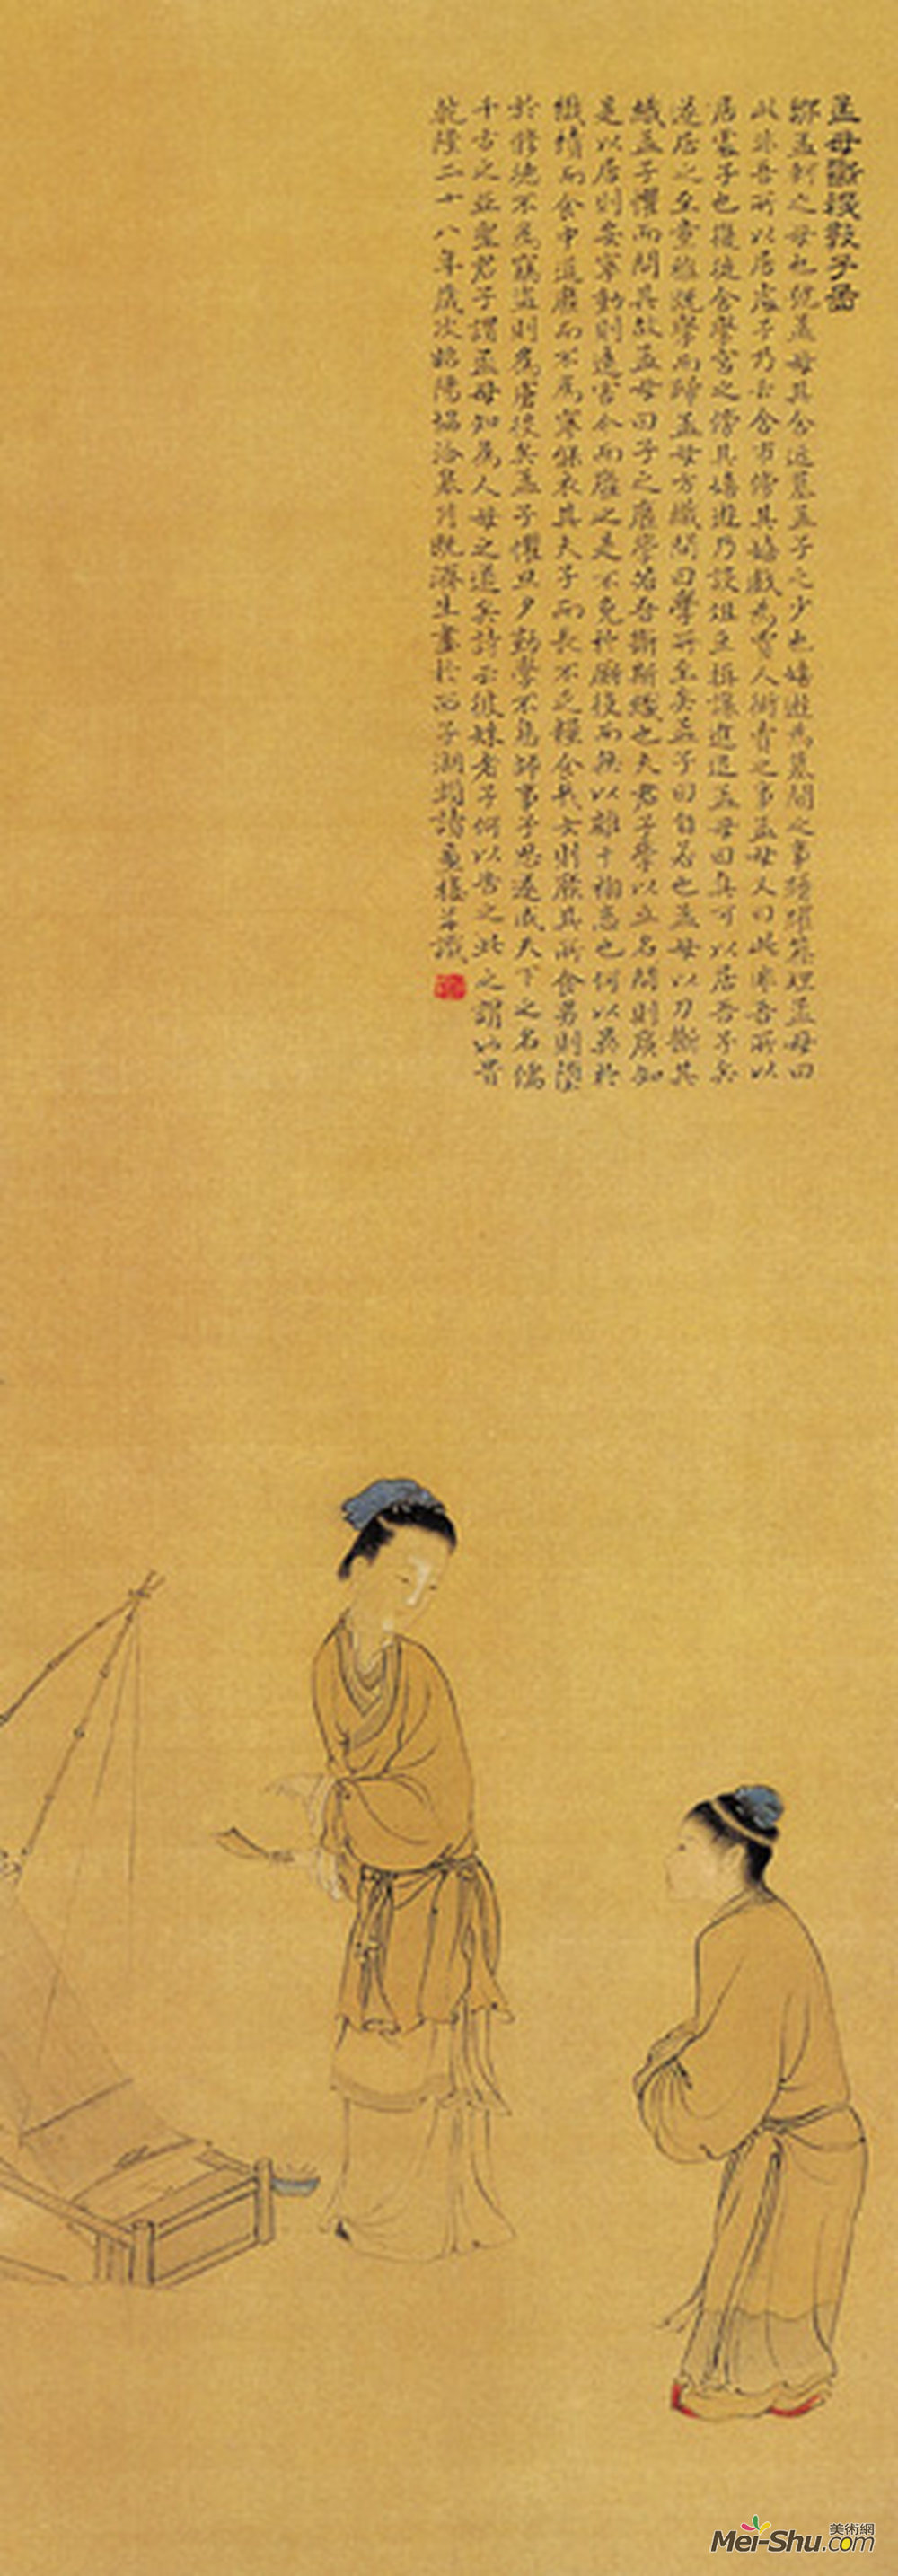 孟母斷機教子圖
鄒孟軻之母也號孟母其舍近墓孟子之少也嬉遊為墓間之事踴躍築埋孟母曰
此非吾所以居處子乃去舍市傍其嬉戲為賈人衒賣之事孟母又曰此非吾所以
居處子也復徙舍學宮之傍其嬉遊乃設俎豆揖讓進退孟母曰真可以居吾子矣
遂居之 學而歸孟母方織問曰學所至矣孟子曰自若也孟母以刀斷其
織孟子懼而問其故孟母曰子之廢學若吾斷斯織也夫君子學以立名問則廣知
是以居則安寧動則遠害今而廢之是不免於廝役而無以離于禍患也何以異於
織績而食中道廢而不為寧 衣其夫子而長不乏糧食哉女則廢其所食男則墮
於修德不為竊盜則為虜役矣孟子懼旦夕勤學不息師事子思遂成天下之名儒
千古之亞聖君子謂孟母知為人母之道矣詩云彼姝者子何以告之此之謂也昔
乾隆二十八年歲次昭陽協洽 月既濟生畫於西子湖
Mei-Shu.com
美術網